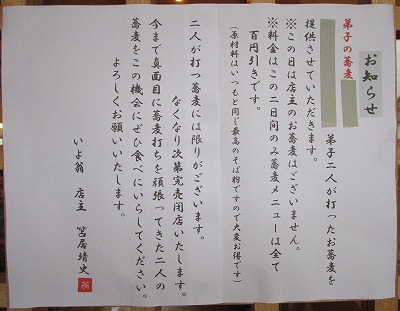 お知らせ
弟子の蕎麦
弟子二人が打ったお蕎麦を
提供させていただきます。
※この日は店主のお蕎麦はございません。
※料金はこの二日間のみ蕎麦メニューは全て
百円引きです。
(原材料はいつもと同じ最高のそば粉ですので大変お得です)
二人が打つ蕎麦には限りがございます。
なくなり次第完売閉店いたします。
今まで真面目に蕎麦打ちを頑張ってきた二人の
蕎麦をこの機会にぜひ食べにいらしてください。
よろしくお願いいたします。
いよ翁 店主 筥居靖史
翁